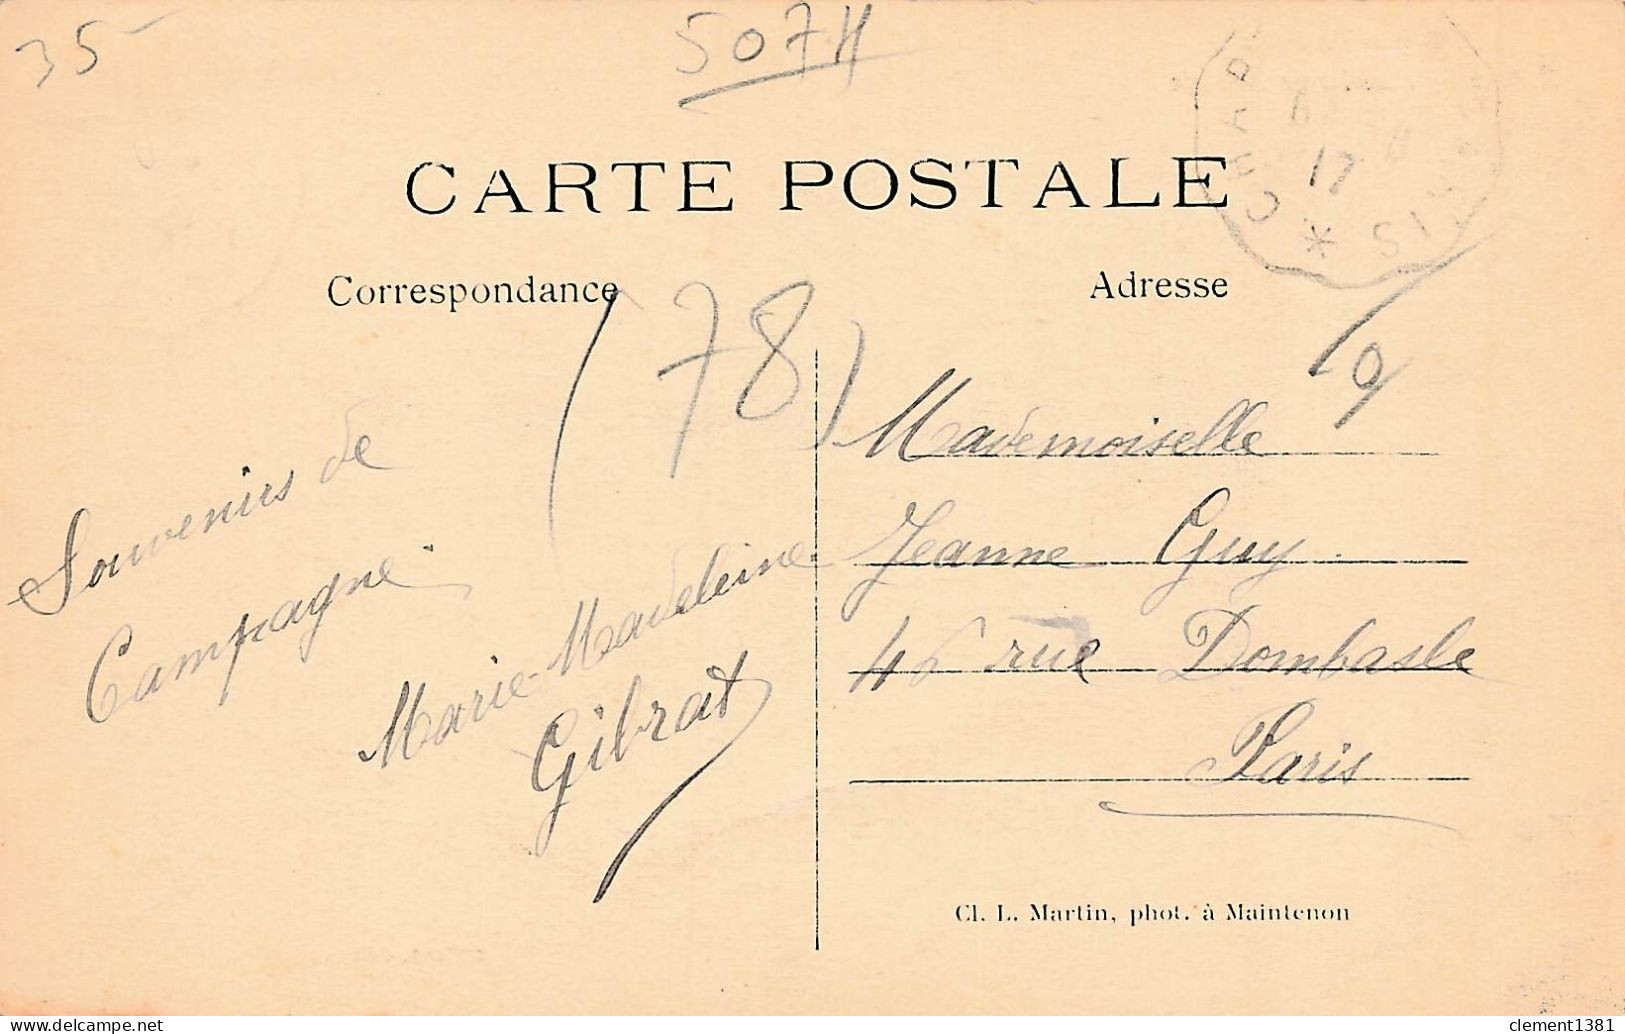 35
507H
CARTE POSTALE
17
Correspondance
Adresse
(78)
Souvenirs de
Campagne.
Marie-Madeleine
Gibrat
Mademoiselle
Jeanne Guy.
rue Dombasle
Paris
Cl. L. Martin, phot. à Maintenon
clement1381